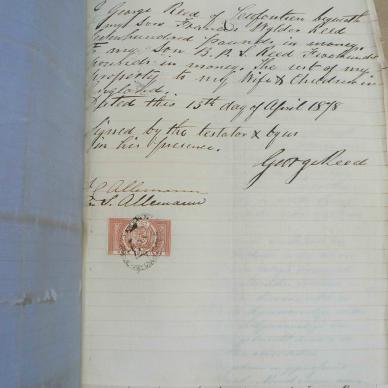 George Reed of
my Son Francis Wylder Reed
hundred Pounds in money
my Son B. A. L. Reed Five hundred
Pounds in money. The rest of my
property to my Wife & Children in
England.
Dated this 15th day of April 1878
Signed by the testator & by us
in his presence.
George Reed
Allemann
S. Allemann